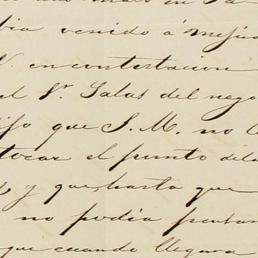 bia venido á Mejico
V. en contestacion
el Sr. Salas del nego
dijo que S. M. no
tocar el punto de la
y que hasta que
no podia
que cuando llegara